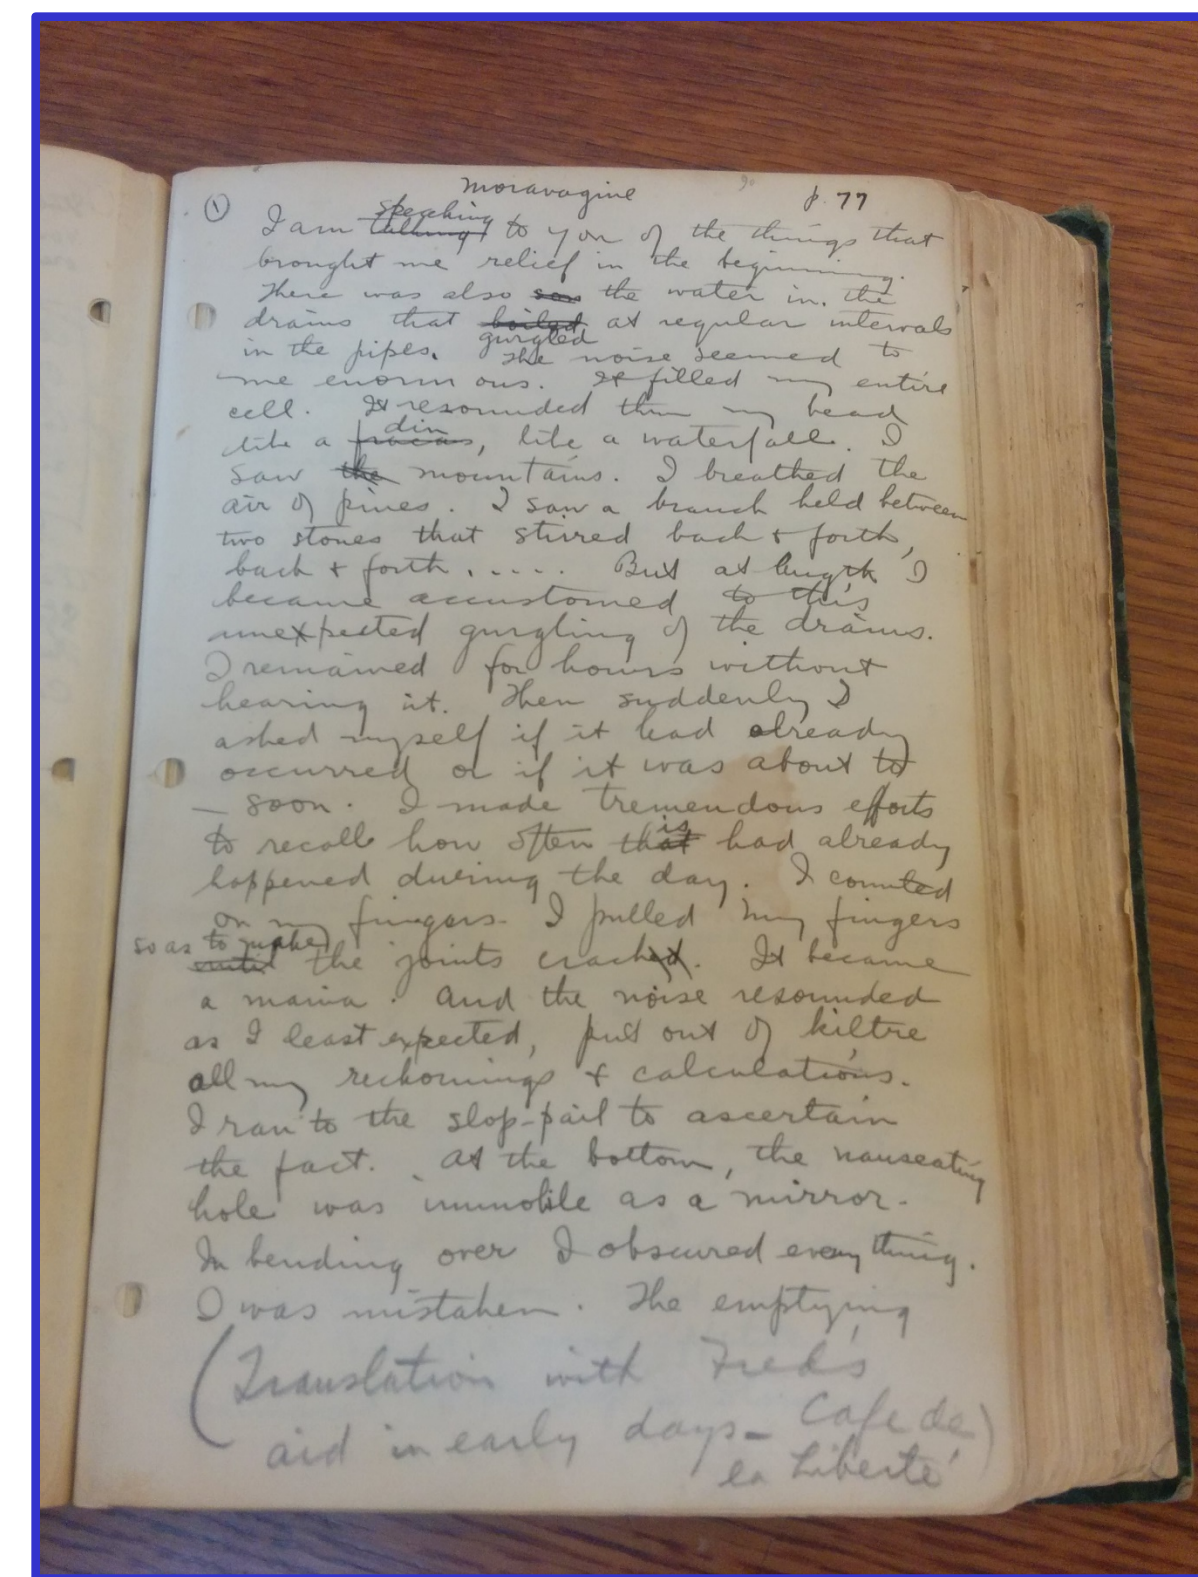 Moravagine p. 77
① I am talking speaking to you of the things that
brought me relief in the beginning.
There was also the water in the
drains that boiled gurgled at regular intervals
in the pipes. The noise seemed to
me enormous. It filled my entire
cell. It resounded thru my head
like a fracas din, like a waterfall. I
saw the mountains. I breathed the
air of pines. I saw a branch held between
two stones that stirred back & forth,
back & forth ..... But at length I
became accustomed to this
unexpected gurgling of the drains.
I remained for hours without
hearing it. Then suddenly I
asked myself if it had already
occurred or if it was about to
— soon. I made tremendous efforts
to recall how often this had already
happened during the day. I counted
on my fingers. I pulled my fingers
so as to make until the joints crack. It became
a mania. And the noise resounded
as I least expected, put out of kiltre
all my reckonings & calculations.
I ran to the slop-pail to ascertain
the fact. At the bottom, the nauseating
hole was immobile as a mirror.
In bending over I obscured everything.
I was mistaken. The emptying
(Translation with Fred's
aid in early days — Cafe de
la Liberté)